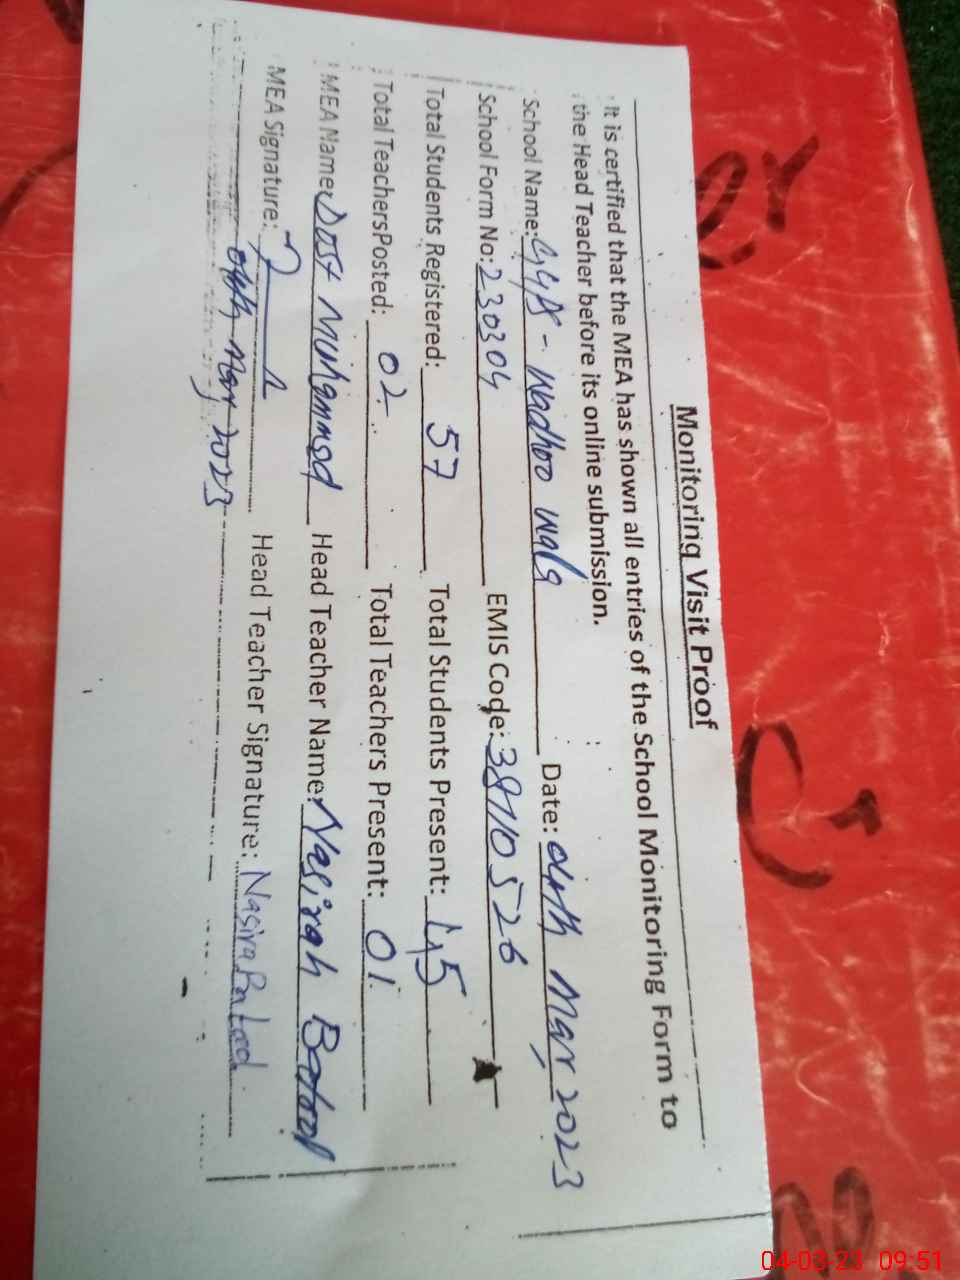 Monitoring Visit Proof
It is certified that the MEA has shown all entries of the School Monitoring Form to
the Head Teacher before its online submission.
School Name: GGPS - Wadhoo Wala Date: 04th Mar, 2023
School Form No: 230304 EMIS Code: 38110526
Total Students Registered: 57 Total Students Present: 45
Total Teachers Posted: 02 Total Teachers Present: 01
MEA Name: Dost Muhammad Head Teacher Name: Nasirah Batool
MEA Signature: Head Teacher Signature: Nasira Batool
04th Mar, 2023
04-03-23 09:51